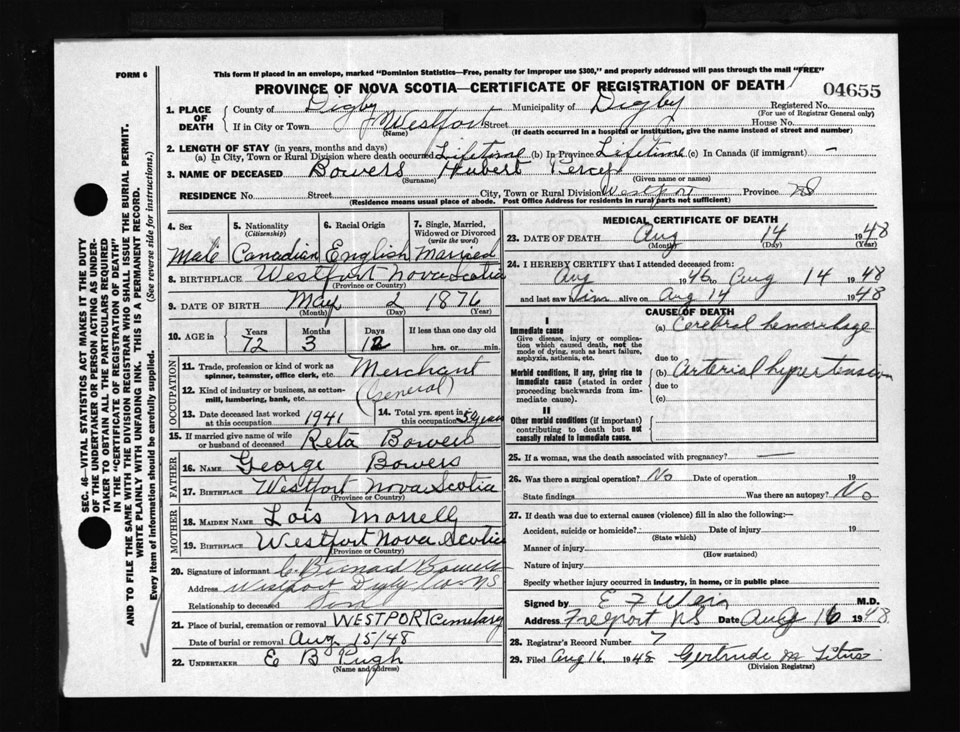 FORM 6
This form if placed in an envelope, marked "Dominion Statistics—Free, penalty for improper use $300," and properly addressed will pass through the mail "FREE"
PROVINCE OF NOVA SCOTIA—CERTIFICATE OF REGISTRATION OF DEATH
04655
1. PLACE OF DEATH County of Digby Municipality of Digby Registered No.
(For use of Registrar General only)
If in City or Town Westport Street House No.
(Name) (If death occurred in a hospital or institution, give the name instead of street and number)
2. LENGTH OF STAY (in years, months and days)
(a) In City, Town or Rural Division where death occurred Lifetime (b) In Province Lifetime (c) In Canada (if immigrant) —
3. NAME OF DECEASED Bowers Hubert Percy
(Surname) (Given name or names)
RESIDENCE No. Street City, Town or Rural Division Westport Province NS
(Residence means usual place of abode. Post Office Address for residents in rural parts not sufficient)
SEC. 46—VITAL STATISTICS ACT MAKES IT THE DUTY
OF THE UNDERTAKER OR PERSON ACTING AS UNDER-
TAKER TO OBTAIN ALL THE PARTICULARS REQUIRED
IN THE "CERTIFICATE OF REGISTRATION OF DEATH"
AND TO FILE THE SAME WITH THE DIVISION REGISTRAR WHO SHALL ISSUE THE BURIAL PERMIT.
WRITE PLAINLY WITH UNFADING INK. THIS IS A PERMANENT RECORD.
Every item of information should be carefully supplied. (See reverse side for instructions.)
4. Sex 5. Nationality (Citizenship) 6. Racial Origin 7. Single, Married, Widowed or Divorced (write the word)
Male Canadian English Married
8. BIRTHPLACE Westport Nova Scotia
(Province or Country)
9. DATE OF BIRTH May 2 1876
(Month) (Day) (Year)
10. AGE in Years Months Days If less than one day old
72 3 12 hrs. or min.
OCCUPATION
11. Trade, profession or kind of work as spinner, teamster, office clerk, etc. Merchant
12. Kind of industry or business, as cotton-mill, lumbering, bank, etc. (General)
13. Date deceased last worked at this occupation 1941 14. Total yrs. spent in this occupation 50 years
15. If married give name of wife or husband of deceased Reta Bowers
FATHER
16. NAME George Bowers
17. BIRTHPLACE Westport Nova Scotia
(Province or Country)
MOTHER
18. MAIDEN NAME Lois Morrell
19. BIRTHPLACE Westport Nova Scotia
(Province or Country)
20. Signature of informant C. Bernard Bowers
Address Westport Digby Co NS
Relationship to deceased Son
21. Place of burial, cremation or removal WESTPORT Cemetary
Date of burial or removal Aug 15/48
22. UNDERTAKER E B Pugh
(Name and address)
MEDICAL CERTIFICATE OF DEATH
23. DATE OF DEATH Aug 14 1948
(Month) (Day) (Year)
24. I HEREBY CERTIFY that I attended deceased from:
Aug 1946 to Aug 14 1948
and last saw him alive on Aug 14 1948
CAUSE OF DEATH
I
Immediate cause (a) Cerebral hemorrhage
Give disease, injury or complication which caused death, not the mode of dying, such as heart failure, asphyxia, asthenia, etc.
due to
Morbid conditions, if any, giving rise to immediate cause (stated in order proceeding backwards from immediate cause). (b) Arterial hypertension
due to
(c)
II
Other morbid conditions (if important) contributing to death but not causally related to immediate cause.
25. If a woman, was the death associated with pregnancy? —
26. Was there a surgical operation? No Date of operation 19
State findings Was there an autopsy? No
27. If death was due to external causes (violence) fill in also the following:—
Accident, suicide or homicide? Date of injury 19
(State which)
Manner of injury
(How sustained)
Nature of injury
Specify whether injury occurred in industry, in home, or in public place
Signed by E F Weir M.D.
Address Freeport NS Date Aug 16 1948
28. Registrar's Record Number 7
29. Filed Aug 16 1948 Gertrude M Titus
(Division Registrar)